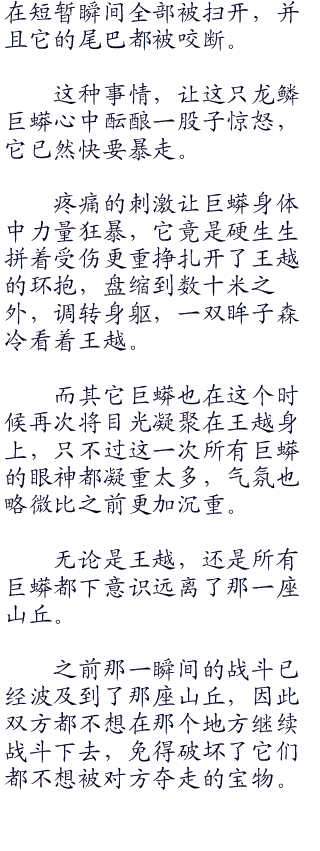 在短暂瞬间全部被扫开，并
且它的尾巴都被咬断。
这种事情，让这只龙鳞
巨蟒心中酝酿一股子惊怒，
它已然快要暴走。
疼痛的刺激让巨蟒身体
中力量狂暴，它竟是硬生生
拼着受伤更重挣扎开了王越
的环抱，盘缩到数十米之
外，调转身躯，一双眸子森
冷看着王越。
而其它巨蟒也在这个时
候再次将目光凝聚在王越身
上，只不过这一次所有巨蟒
的眼神都凝重太多，气氛也
略微比之前更加沉重。
无论是王越，还是所有
巨蟒都下意识远离了那一座
山丘。
之前那一瞬间的战斗已
经波及到了那座山丘，因此
双方都不想在那个地方继续
战斗下去，免得破坏了它们
都不想被对方夺走的宝物。